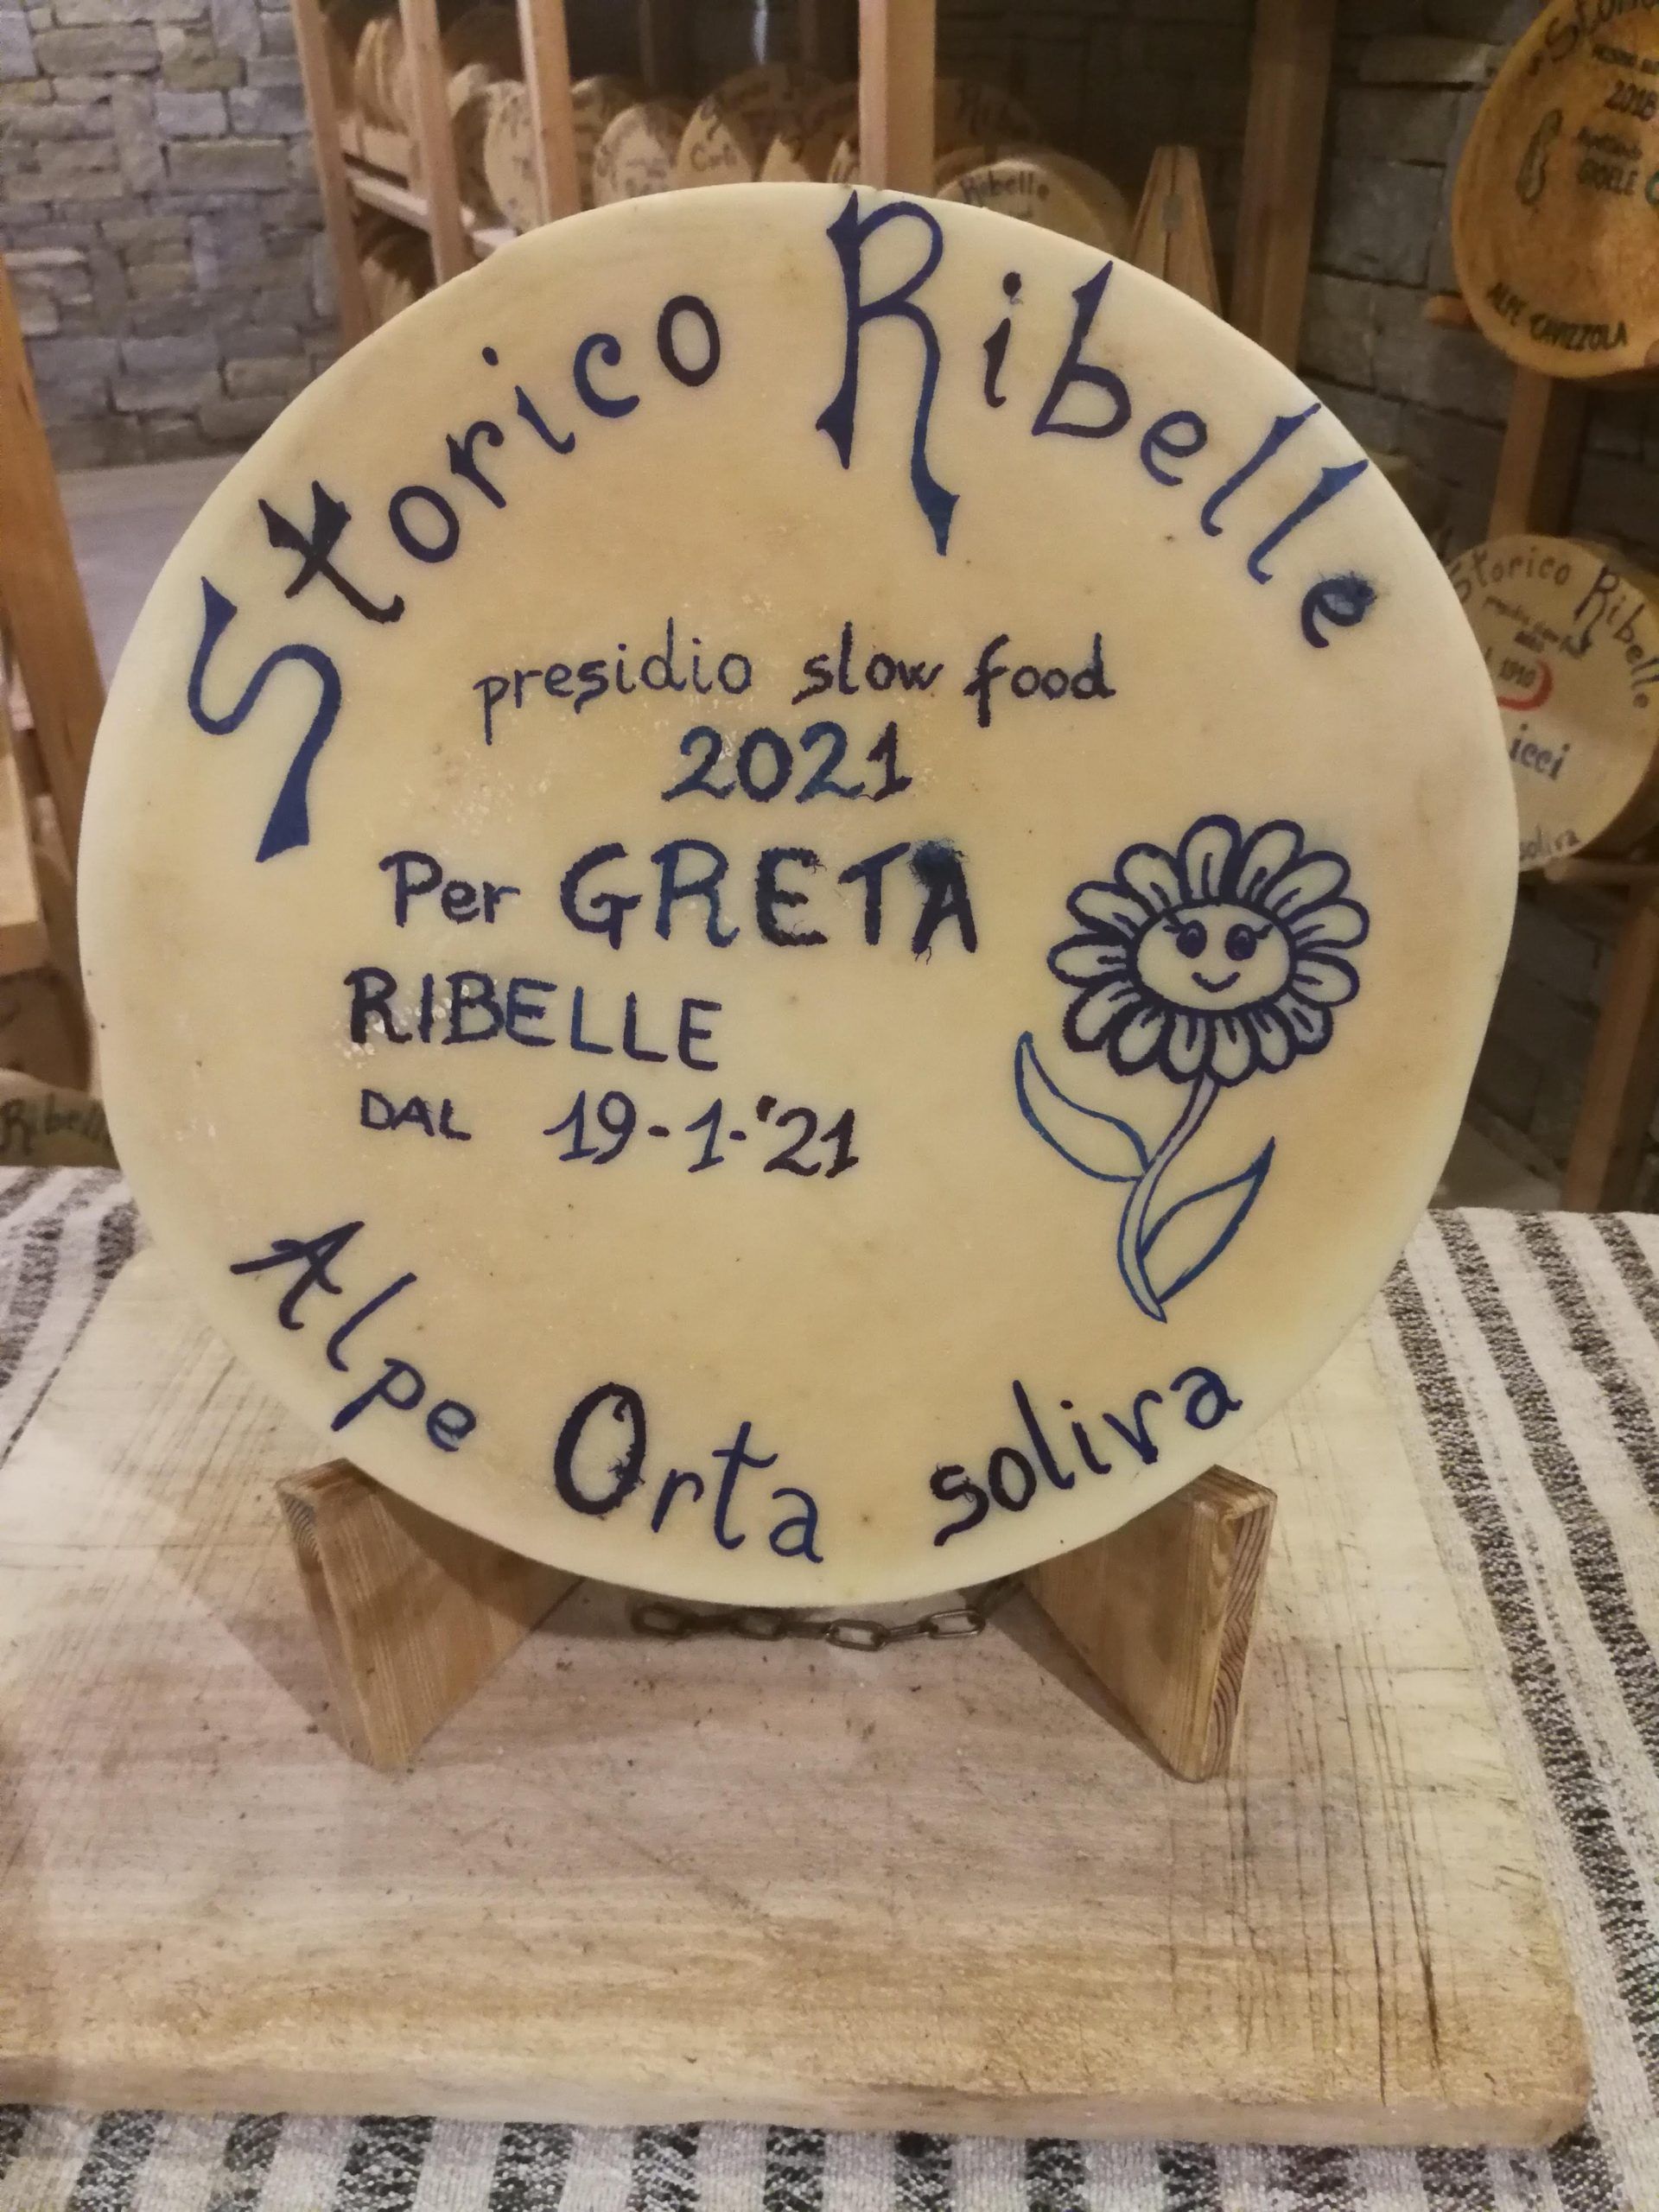 Storico Ribelle
presidio slow food
2021
Per GRETA
RIBELLE
DAL 19-1-'21
Alpe Orta soliva
Ribelle
2018
GIOELE
ALPE CAVIZZOLA
Storico Ribelle
icci
soliva
Ribelle